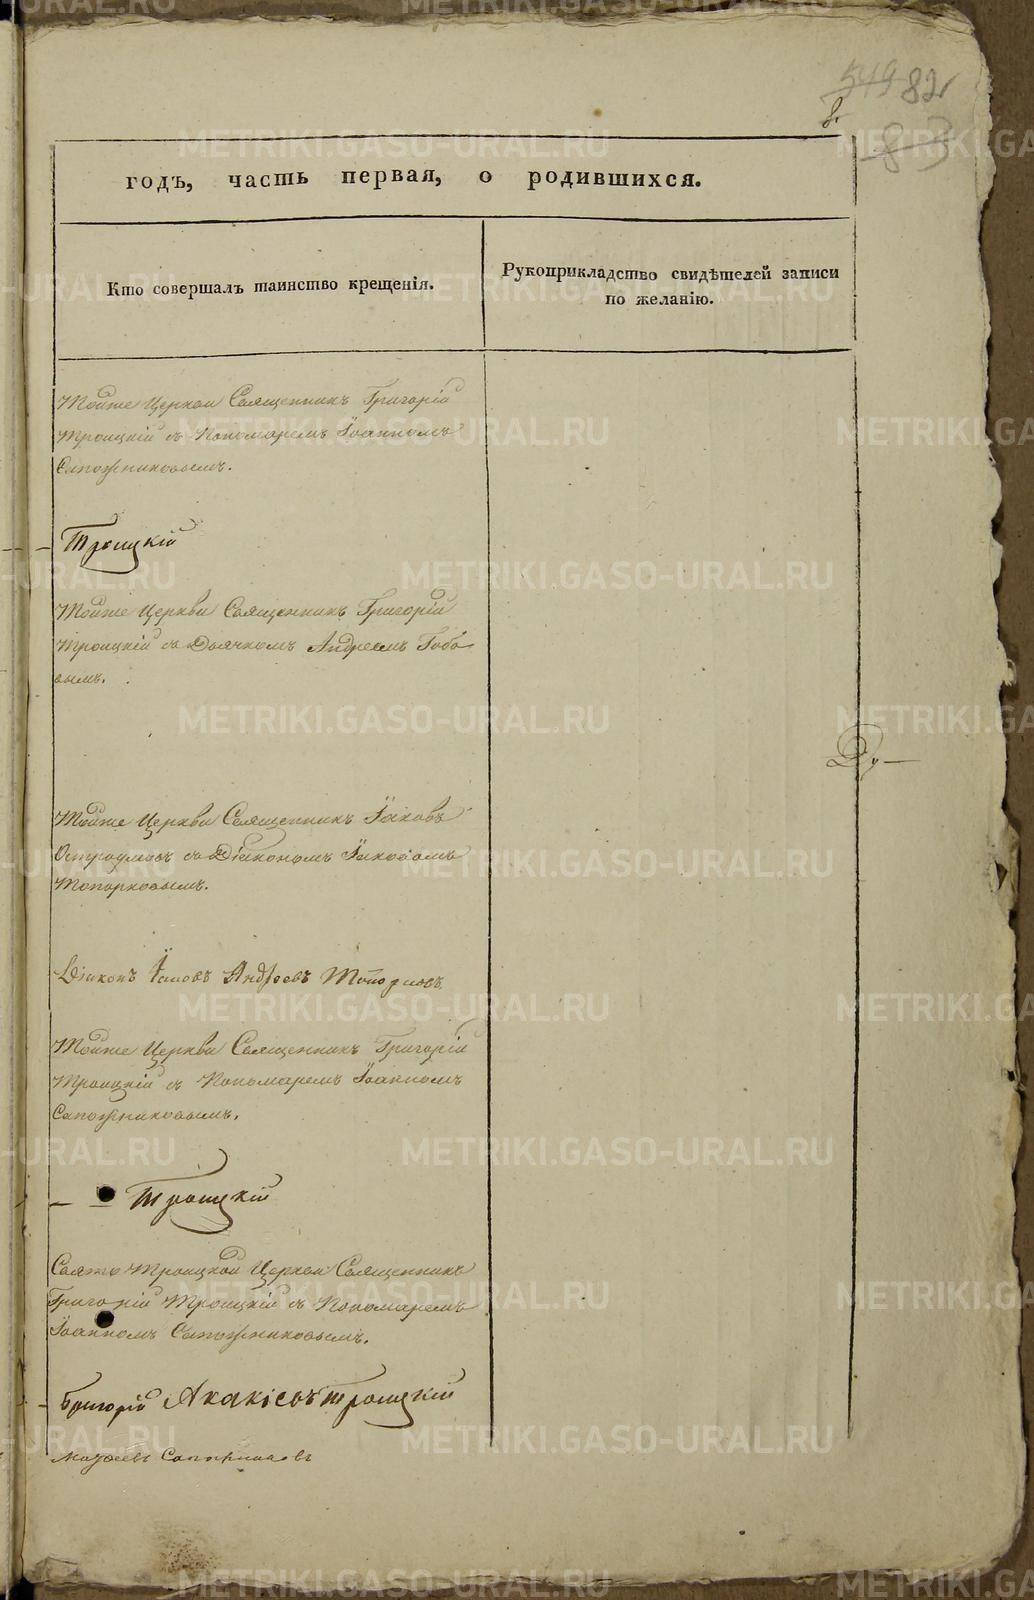 549 82
8.
83
годъ, часть первая, о родившихся.
Кто совершалъ таинство крещенія.
Рукоприкладство свидѣтелей записи
по желанію.
Тойже Церкви Священникъ Григорій
Троицкій съ Пономаремъ Іоанномъ
Сапожниковымъ.
Троицкій
Тойже Церкви Священникъ Григорій
Троицкій съ Дьячкомъ Андреемъ
вымъ.
Ду
Тойже Церкви Священникъ Іаковъ
Остроумовъ съ Діакономъ Іаковомъ
Топорковымъ.
Діаконъ Іаковъ Андреевъ Топорковъ
Тойже Церкви Священникъ Григорій
Троицкій съ Пономаремъ Іоанномъ
Сапожниковымъ.
Троицкій
Свято Троицкой Церкви Священникъ
Григорій Троицкій съ Пономаремъ
Іоанномъ Сапожниковымъ.
Григорій Акакіевъ Троицкій
Сапожниковъ
METRIKI.GASO-URAL.RU